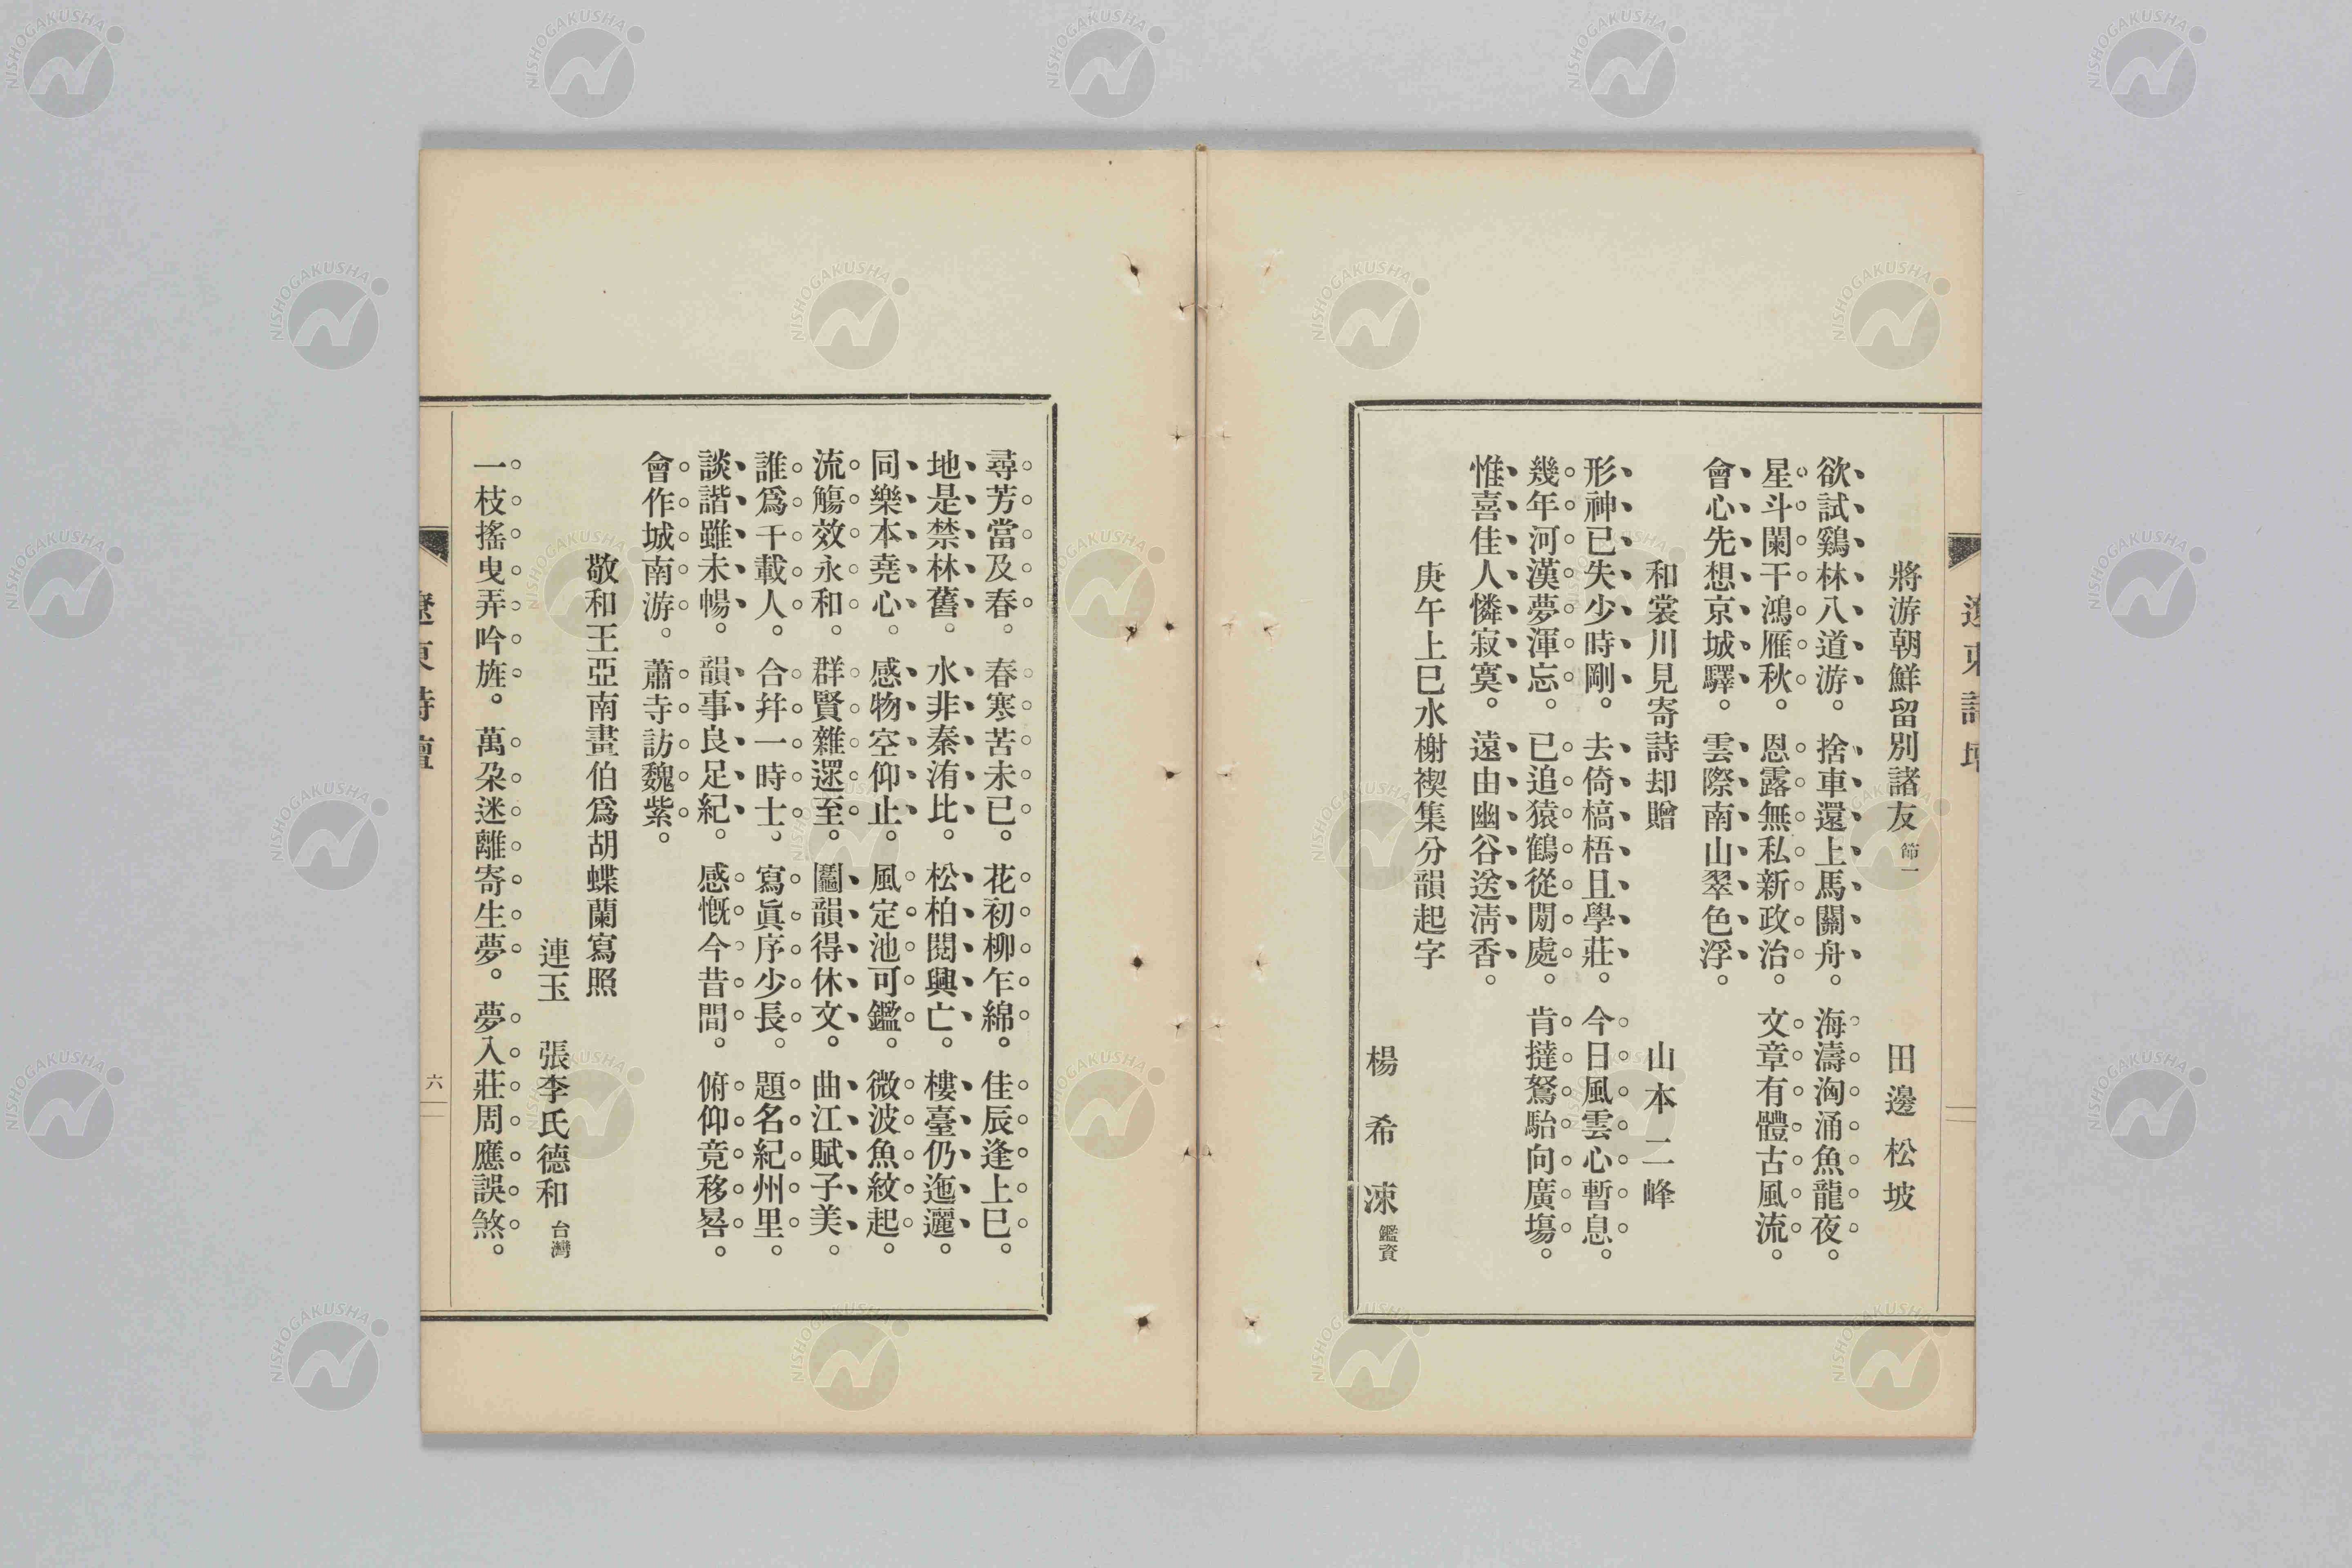 將游朝鮮留別諸友 節一 田邊松坡
欲試鷄林八道游。捨車還上馬關舟。海濤洶涌魚龍夜。
星斗闌干鴻雁秋。恩露無私新政治。文章有體古風流。
會心先想京城驛。雲際南山翠色浮。
和裳川見寄詩却贈 山本二峰
形神已失少時剛。去倚槁梧且學莊。今日風雲心暫息。
幾年河漢夢渾忘。已追猿鶴從閒處。肯撻駑駘向廣塲。
惟喜佳人憐寂寞。遠由幽谷送淸香。
庚午上巳水榭禊集分韻起字
楊希涷 鑑資
尋芳當及春。春寒苦未已。花初柳乍綿。佳辰逢上巳。
地是禁林舊。水非秦洧比。松柏閱興亡。樓臺仍迤邐。
同樂本堯心。感物空仰止。風定池可鑑。微波魚紋起。
流觴效永和。群賢雜遝至。鬮韻得休文。曲江賦子美。
誰爲千載人。合幷一時士。寫眞序少長。題名紀州里。
談諧雖未暢。韻事良足紀。感慨今昔間。俯仰竟移晷。
會作城南游。蕭寺訪魏紫。
敬和王亞南畫伯爲胡蝶蘭寫照
連玉 張李氏德和 台灣
一枝搖曳弄吟旌。萬朶迷離寄生夢。夢入莊周應誤煞。
遼東詩壇
六
NISHOGAKUSHA